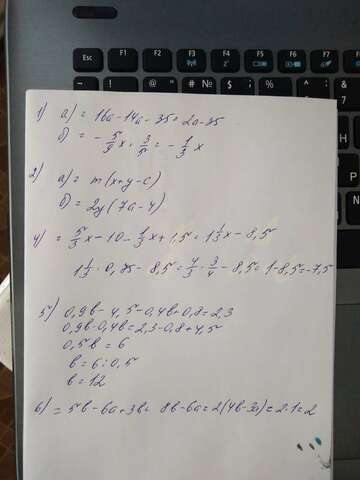 Esc F1 F2 F3 F4 F5 F6 F7 F8
1) а) = 16a - 14a - 35 = 2a - 35
б) = - 5/9 x · 3/5 = - 1/3 x
2) а) = m(x+y-c)
б) = 2y(7a-4)
4) = 5/3 x - 10 - 1/3 x + 1,5 = 1 1/3 x - 8,5
1 1/3 · 0,75 - 8,5 = 4/3 · 3/4 - 8,5 = 1 - 8,5 = -7,5
5) 0,9b - 4,5 - 0,4b + 0,8 = 2,3
0,9b - 0,4b = 2,3 - 0,8 + 4,5
0,5b = 6
b = 6 : 0,5
b = 12
6) = 5b - 6a + 3b = 8b - 6a = 2(4b - 3a) = 2·1 = 2